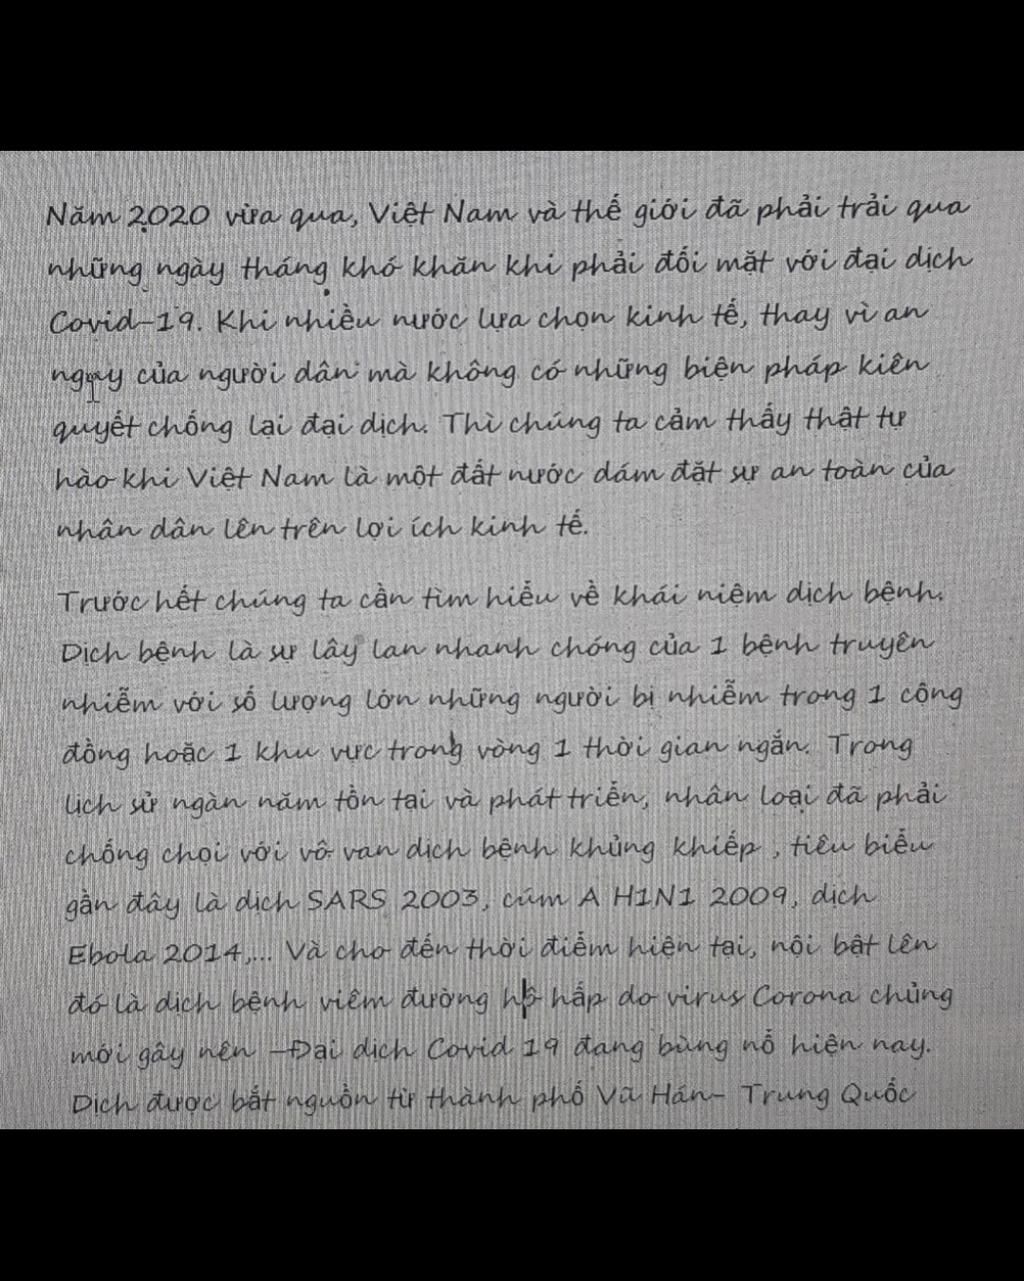 Năm 2020 vừa qua, Việt Nam và thế giới đã phải trải qua
những ngày tháng khó khăn khi phải đối mặt với đại dịch
Covid-19. Khi nhiều nước lựa chọn kinh tế, thay vì an
nguy của người dân mà không có những biện pháp kiên
quyết chống lại đại dịch. Thì chúng ta cảm thấy thật tự
hào khi Việt Nam là một đất nước dám đặt sự an toàn của
nhân dân lên trên lợi ích kinh tế.
Trước hết chúng ta cần tìm hiểu về khái niệm dịch bệnh.
Dịch bệnh là sự lây lan nhanh chóng của 1 bệnh truyền
nhiễm với số lượng lớn những người bị nhiễm trong 1 cộng
đồng hoặc 1 khu vực trong vòng 1 thời gian ngắn. Trong
lịch sử ngàn năm tồn tại và phát triển, nhân loại đã phải
chống chọi với vô vàn dịch bệnh khủng khiếp, tiêu biểu
gần đây là dịch SARS 2003, cúm A H1N1 2009, dịch
Ebola 2014,... Và cho đến thời điểm hiện tại, nổi bật lên
đó là dịch bệnh viêm đường hô hấp do virus Corona chủng
mới gây nên -Đại dịch Covid 19 đang bùng nổ hiện nay.
Dịch được bắt nguồn từ thành phố Vũ Hán- Trung Quốc